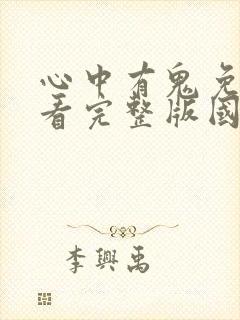 心中有鬼免
看完整版國
李興禹